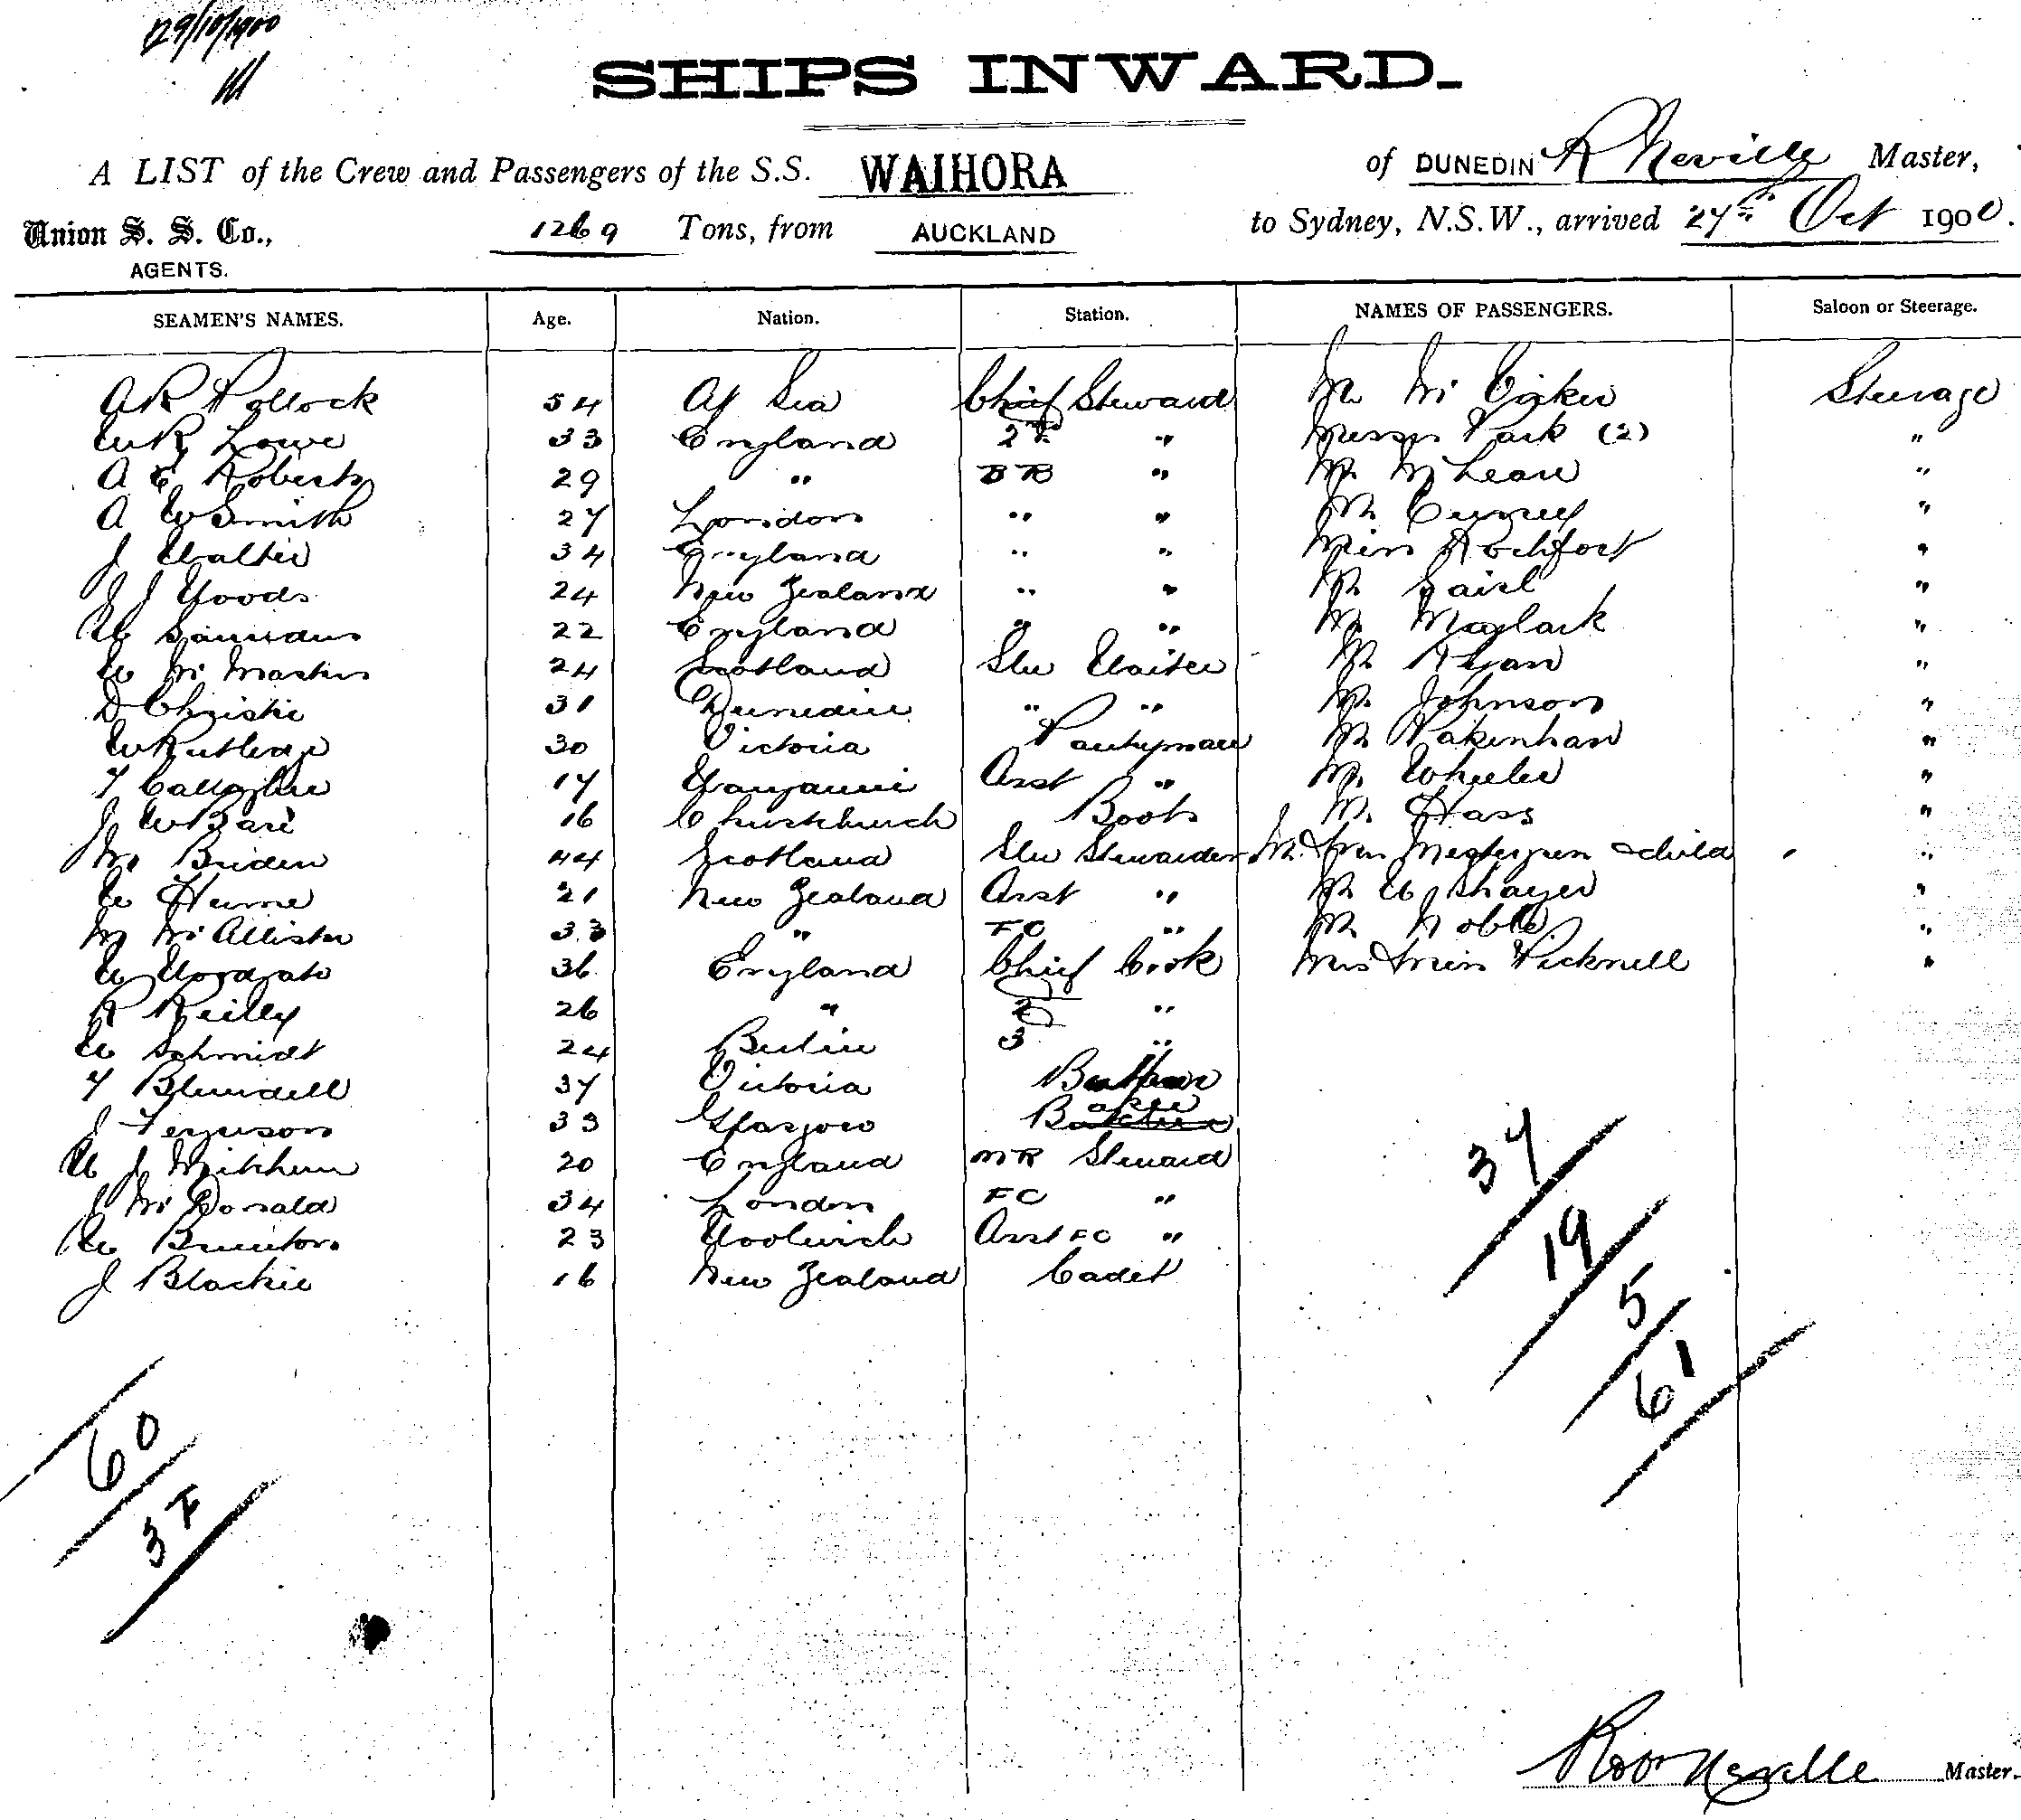 29/10/1900
SHIPS INWARD.
A LIST of the Crew and Passengers of the S.S. WAIHORA of DUNEDIN R Neville Master,
Union S. S. Co., 1269 Tons, from AUCKLAND to Sydney, N.S.W., arrived 27th Oct 1900.
AGENTS.
SEAMEN'S NAMES. Age. Nation. Station. NAMES OF PASSENGERS. Saloon or Steerage.
A R Pollock 54 At Sea Chief Steward Mr Steerage
W R Lowe 33 England 2nd " Messrs Park (2) "
A E Roberts 29 " BR " Mr McLean "
A W Smith 27 London " " Mr "
J Walter 34 England " " Miss Rochfort "
J J Woods 24 New Zealand " " Mr "
W Saunders 22 England " " Mr "
W McMaster 24 Scotland Stw Waiter Mr Ryan "
D Christie 31 Dunedin " " Mr Johnson "
W Rutledge 30 Victoria Pantryman Mr Pakenham "
T 17 Asst " Mr Wheeler "
J W 16 Christchurch Boots Mr Hass "
Mrs Briden 44 Scotland Stw Stewardess Mr & Mrs & child "
W Hume 21 New Zealand Asst " Mr W Shayer "
M McAllister 33 " FC " Mr Noble "
W 36 England Chief Cook Mrs & Miss Picknell "
R Reilly 26 " 2 "
W Schmidt 24 Berlin 3 "
T Blundell 37 Victoria Butcher
J Ferguson 33 Glasgow Baker
W J 20 England MR Steward
J McDonald 34 London FC "
W Brunton 23 Woolwich Asst FC "
J Blackie 16 New Zealand Cadet
37
19
5
61
60
37
Robt Neville Master.